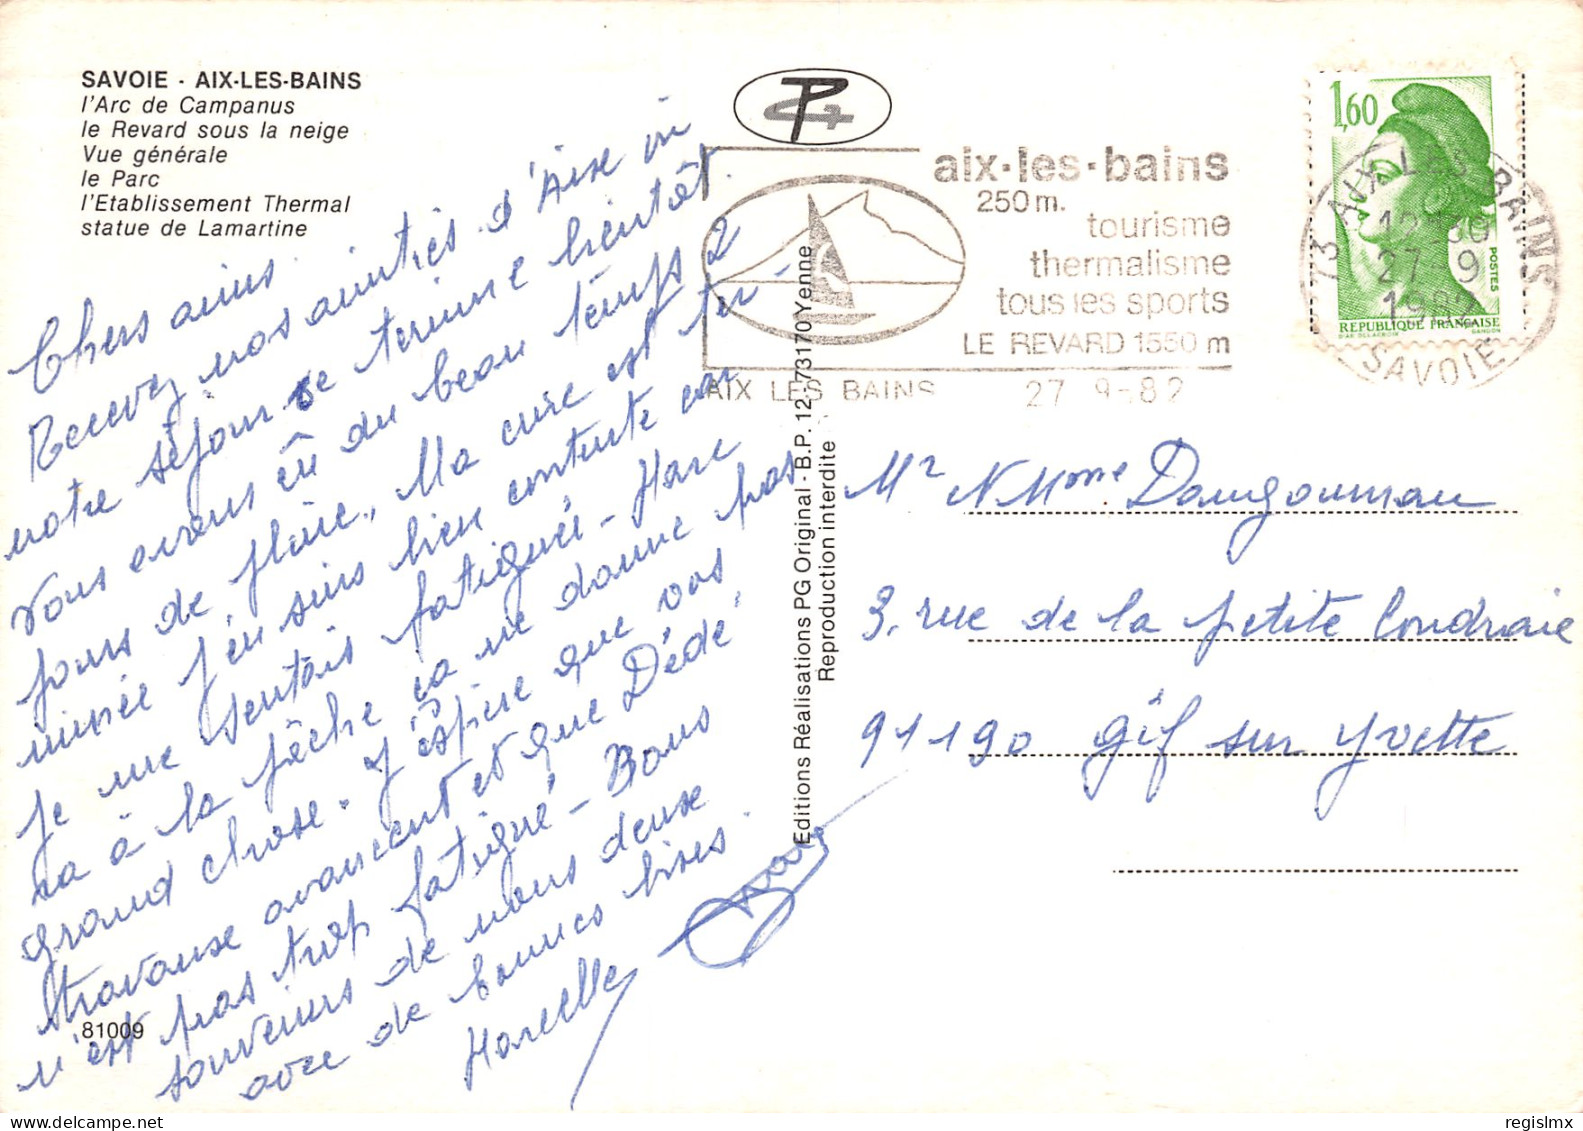 SAVOIE - AIX-LES-BAINS
l'Arc de Campanus
le Revard sous la neige
Vue générale
le Parc
l'Etablissement Thermal
statue de Lamartine
Chers amis.
Recevez nos amitiés d'Aix
notre séjour se termine bientôt.
Nous avons eû du beau temps 2
jours de pluie. Ma cure est ter-
minée j'en suis bien contente car
je me sentais fatiguée - Marc
va à la pêche ça ne donne pas
grand chose. J'éspère que vos
travause avancent et que Dédé,
n'est pas trop fatigué - Bons
souvenirs de nous deuse
avec de bonnes bises.
Marcelle
81009
Editions Réalisations PG Original - B.P. 12 - 73170 Yenne
Reproduction interdite
aix-les-bains
250 m.
tourisme
thermalisme
tous les sports
LE REVARD 1550 m
AIX LES BAINS 27 9-82
1,60
POSTES
REPUBLIQUE FRANÇAISE
D'AP. DELACROIX GANDON
73 AIX LES BAINS
27-9
SAVOIE
Mr Mme Daugouman
3, rue de la petite Coudraie
91190 Gif sur Yvette
regislmx